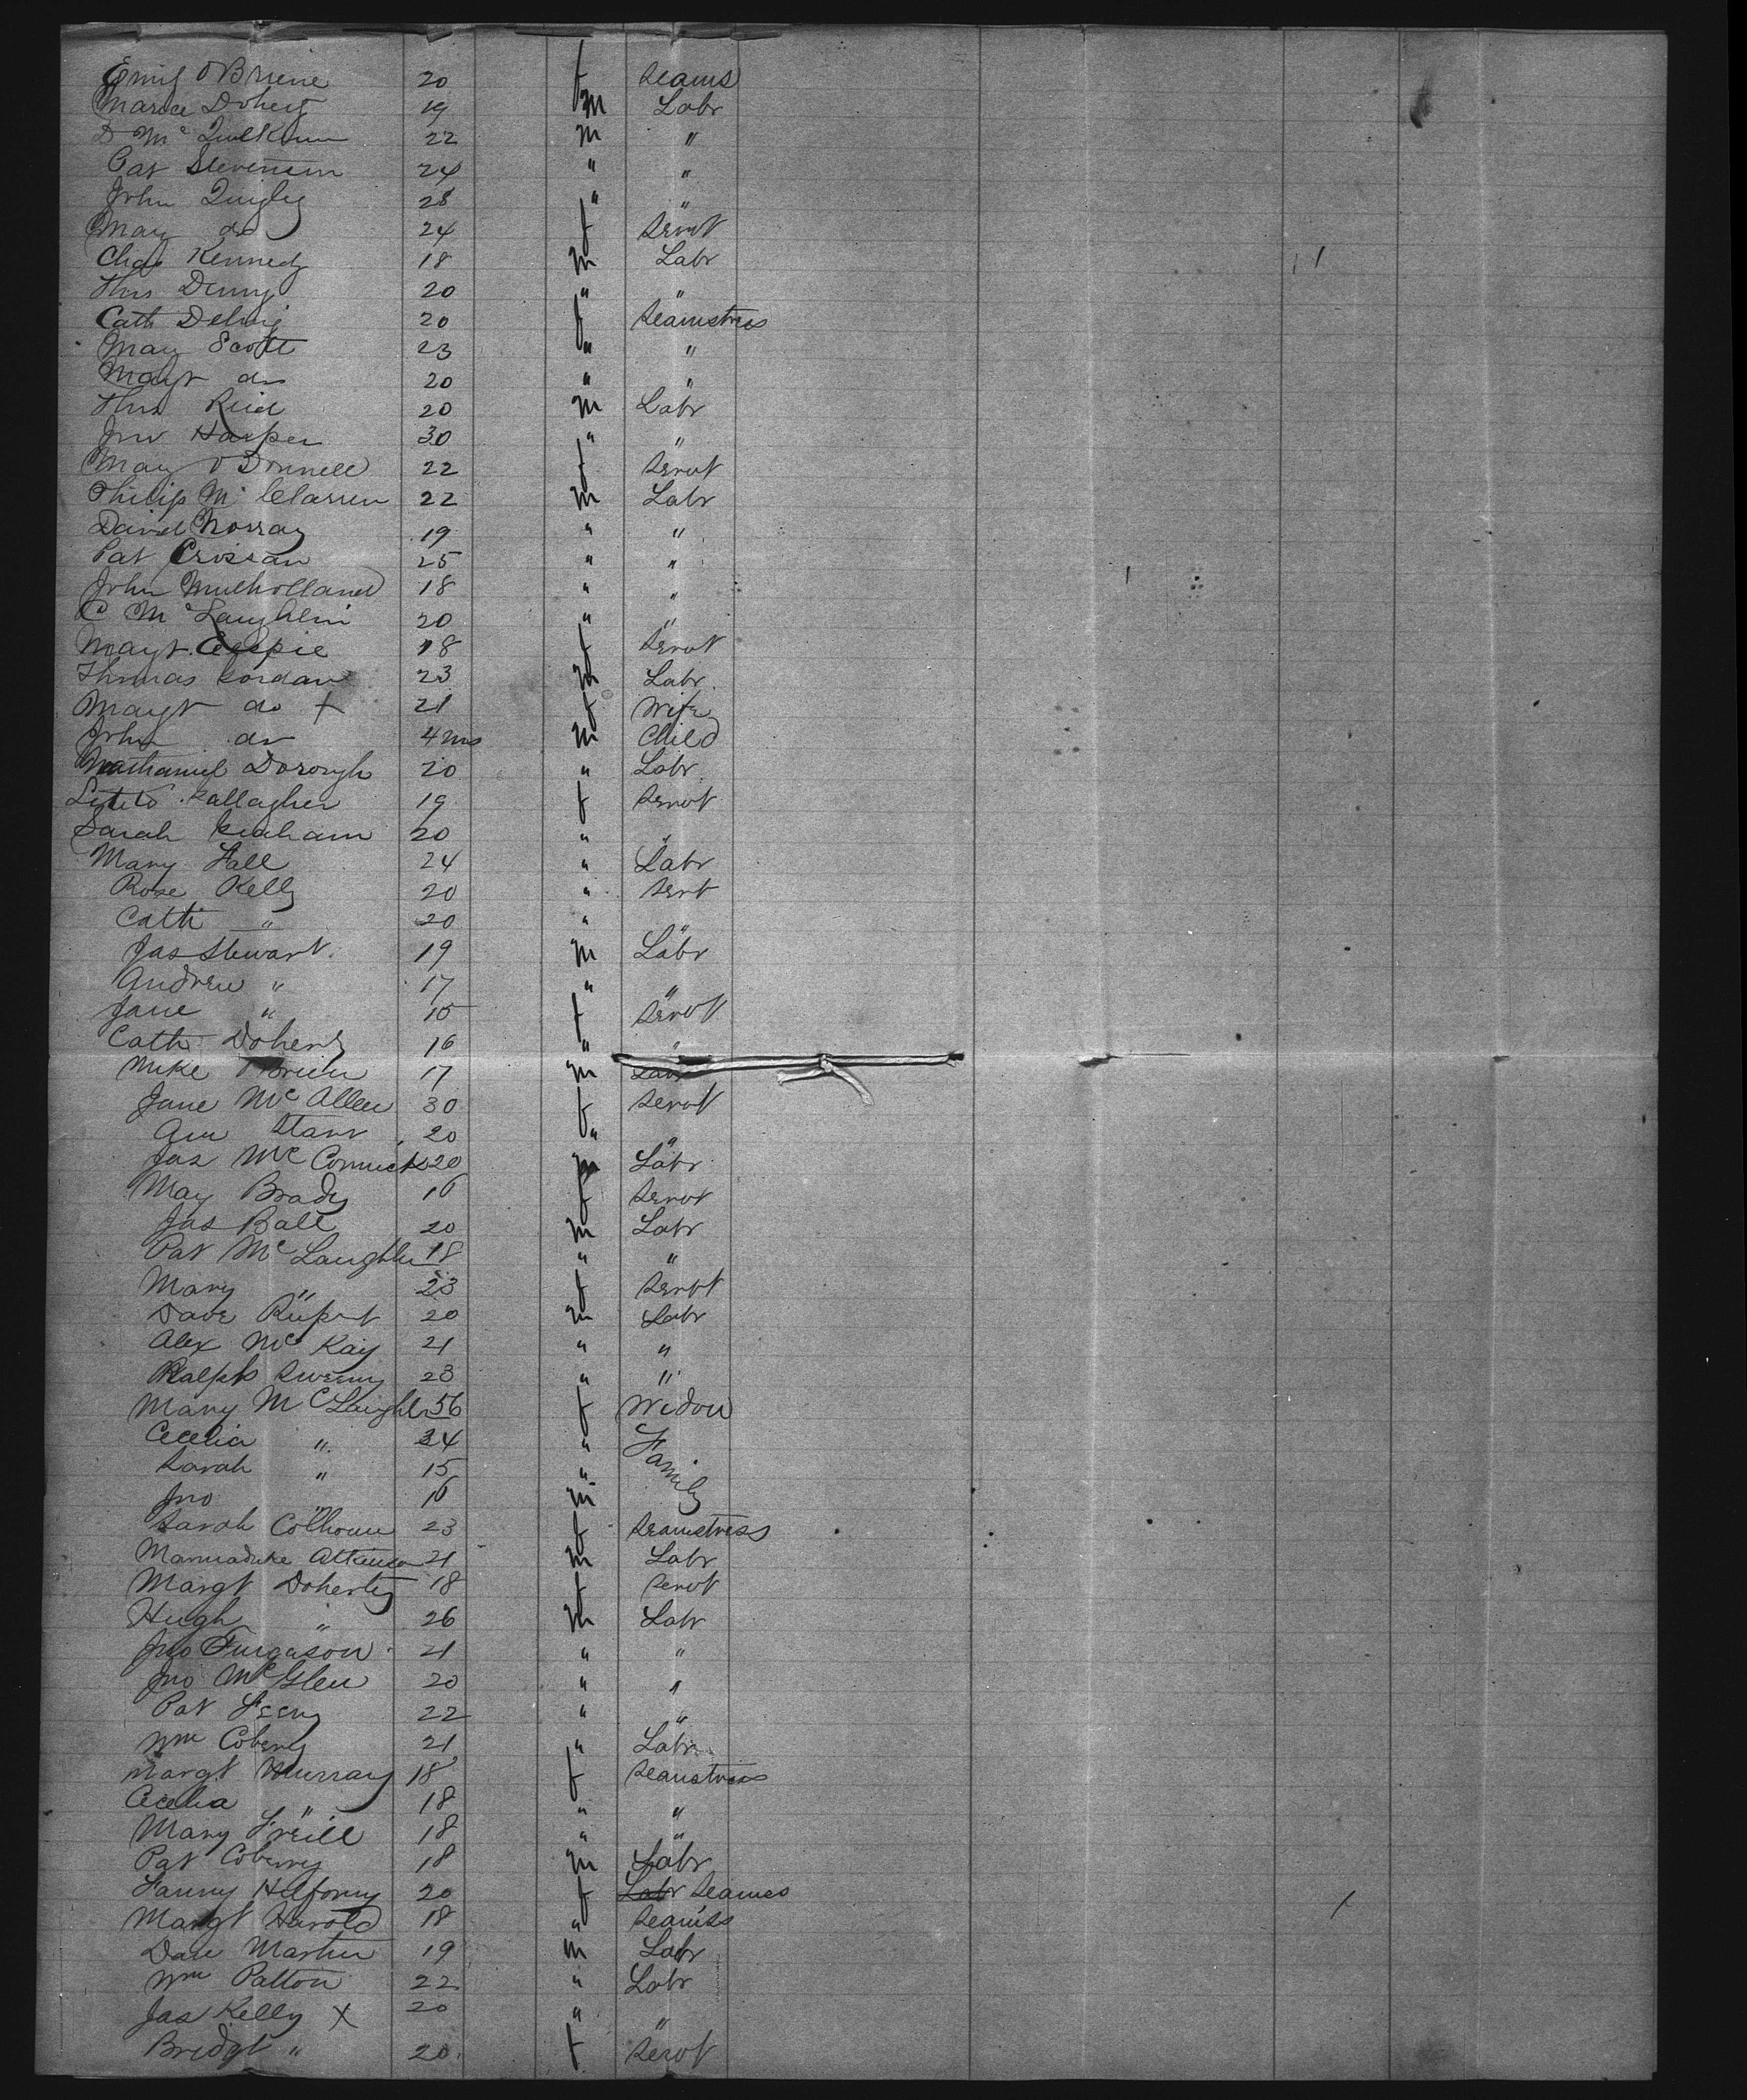 Emil O'Briene 20 f Seams
Marce Dohert 19 m Labr
D Mc 22 m "
Pat Stevenson 24 " "
John Quigley 28 " "
Mary do 24 f Servt
Chas Kennedy 18 m Labr
Thos Denny 20 " "
Cath 20 f Seamstress
Mary Scott 23 " "
Margt do 20 " "
Thos Reid 20 m Labr
Jno Harper 30 " "
Mary O'Donnell 22 f Servt
Philip Mc Clarren 22 m Labr
David Norray 19 " "
Pat Crossan 25 " "
John Mulholland 18 " "
C Mc Laughlin 20 " "
Margt 18 f Servt
Thomas Gordan 23 m Labr
Margt do + 21 f Wife
John do 4 ms m Child
Nathaniel Dorough 20 " Labr
Gallagher 19 f Servt
Sarah Graham 20 " "
Mary Hall 24 " Labr
Rose Kelly 20 " Sert
Cath " 20 " "
Jas Stewart 19 m Labr
Andrew " 17 " "
Jane " 15 f Servt
Cath Doherty 16 " "
Mike O'Brien 17 m Labr
Jane Mc Allen 30 f Servt
Ann Starr 20 " "
Jas Mc Cormick 20 m Labr
May Brady 16 f Servt
Jas Ball 20 m Labr
Pat Mc Laughlin 18 " "
Mary " 23 f Servt
Dave 20 m Labr
Alex Mc Kay 21 " "
Ralph Sweeny 23 " "
Mary Mc Laughln 56 f Widow
Cecelia " 24 " Family
Sarah " 15 "
Jno " 16 m
Sarah Colhoun 23 f Seamstress
Marmaduke Atkinson 21 m Labr
Margt Doherty 18 f Servt
Hugh " 26 m Labr
Jno Furgason 21 " "
Jno Mc Glen 20 " "
Pat Feeny 22 " "
Wm Coberry 21 " Labr
Margt Murray 18 f Seamstress
Cecelia " 18 " "
Mary Freill 18 " "
Pat Coberry 18 m Labr
Fanny 20 f Labr Seames
Margt Harold 18 " Seamss
Dave Martin 19 m Labr
Wm Patton 22 " Labr
Jas Kelly X 20 " "
Bridgt " 20 f Servt